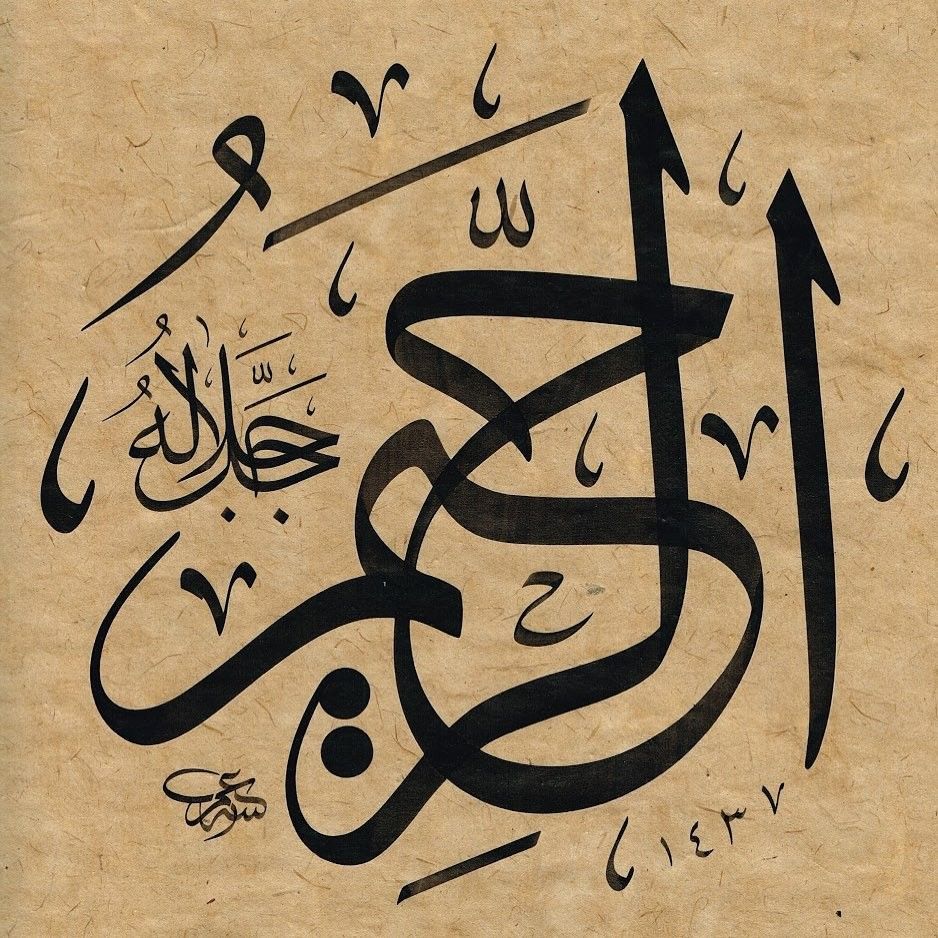 الرَّحِيمُ
جَلَّ جَلَالُهُ
١٤٣٧